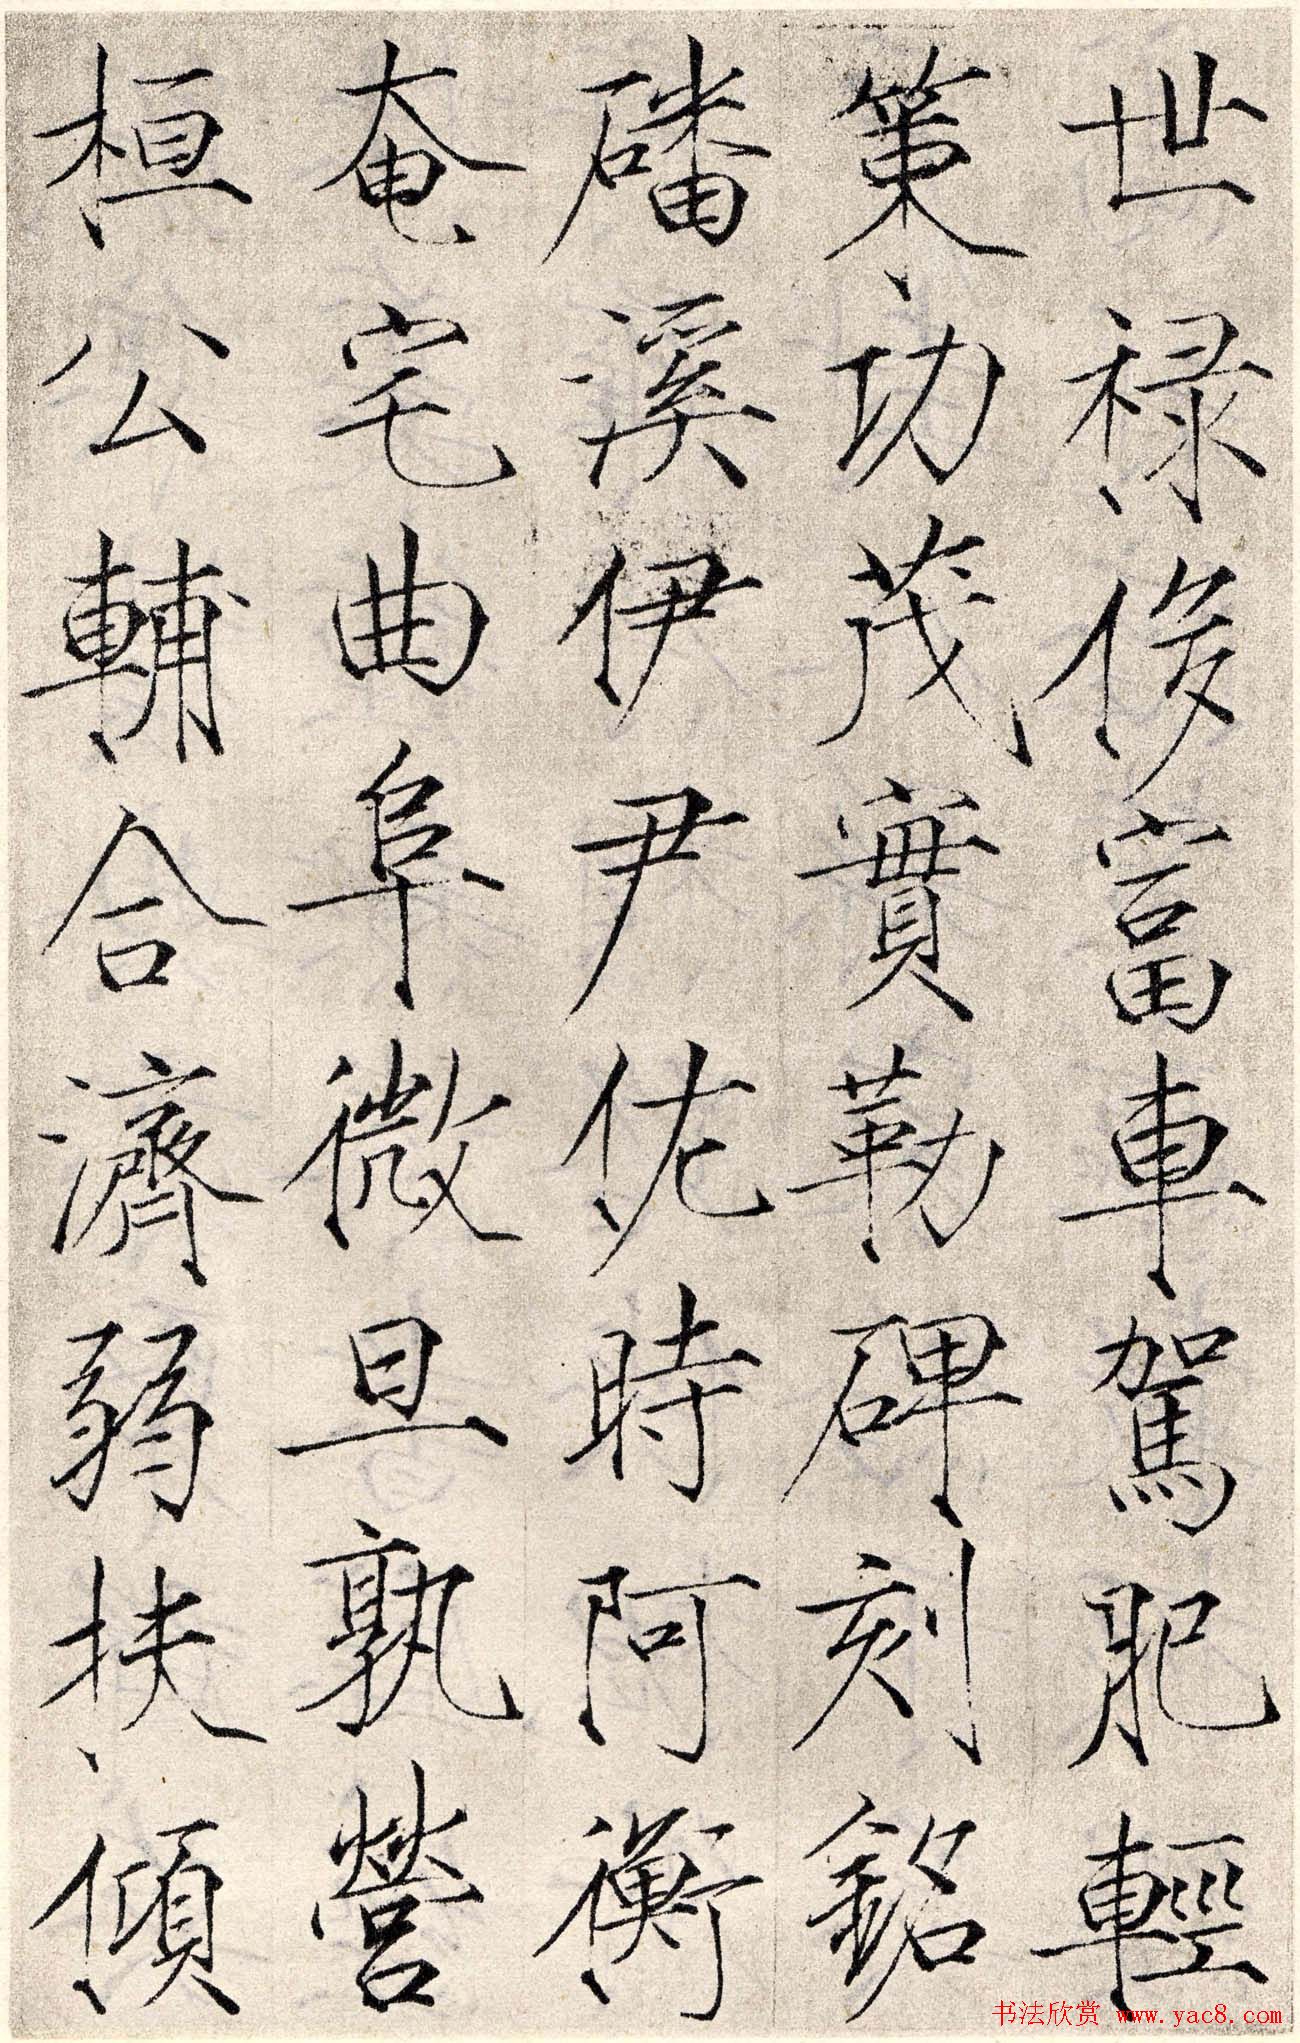 世禄侈富車駕肥輕
策功茂實勒碑刻銘
磻溪伊尹佐時阿衡
奄宅曲阜微旦孰營
桓公輔合濟弱扶傾
书法欣赏 www.yac8.com